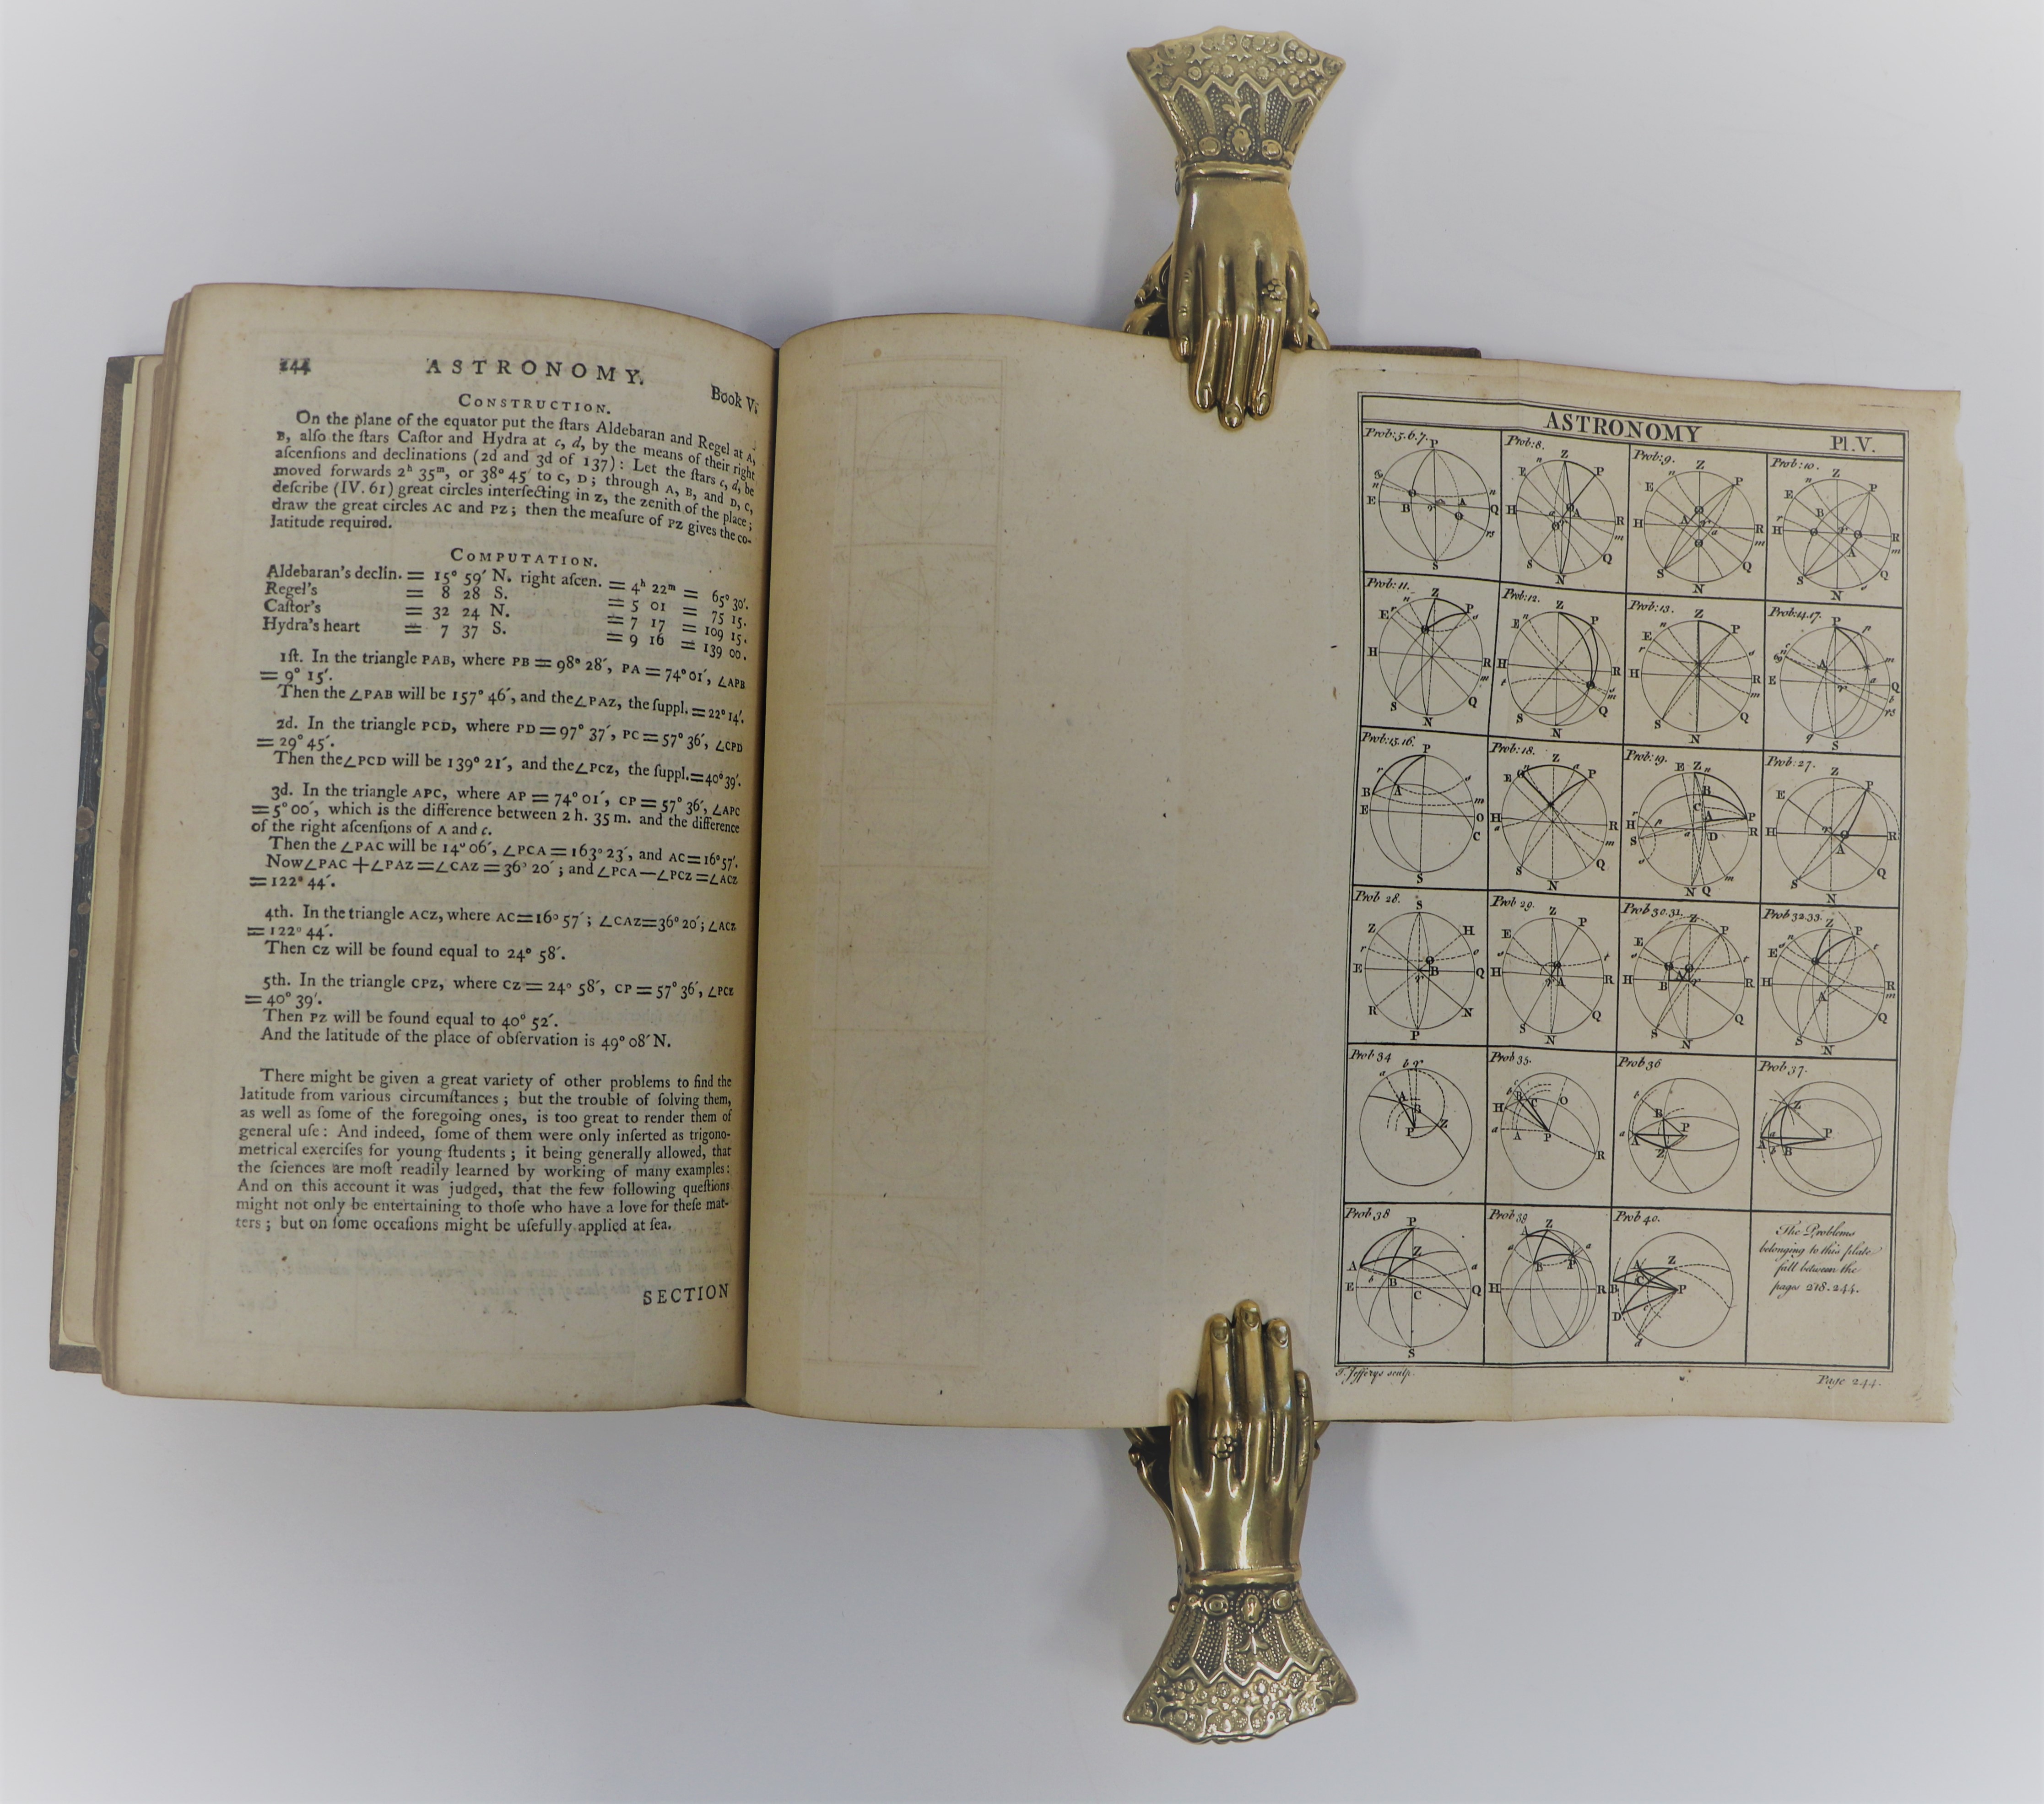 244 ASTRONOMY. Book V.
CONSTRUCTION.
On the plane of the equator put the ſtars Aldebaran and Regel at A,
B, alſo the ſtars Caſtor and Hydra at c, d, by the means of their right
aſcenſions and declinations (2d and 3d of 137): Let the ſtars c, d, be
moved forwards 2ʰ 35ᵐ, or 38° 45′ to C, D; through A, B, and D, C,
deſcribe (IV. 61) great circles interſecting in z, the zenith of the place;
draw the great circles AC and PZ; then the meaſure of PZ gives the co-
latitude required.
COMPUTATION.
Aldebaran's declin. = 15° 59′ N. right aſcen. = 4ʰ 22ᵐ = 65° 30′.
Regel's = 8 28 S. = 5 01 = 75 15.
Caſtor's = 32 24 N. = 7 17 = 109 15.
Hydra's heart = 7 37 S. = 9 16 = 139 00.
1ſt. In the triangle PAB, where PB = 98° 28′, PA = 74° 01′, ∠APB
= 9° 15′.
Then the ∠PAB will be 157° 46′, and the ∠PAZ, the ſuppl. = 22° 14′.
2d. In the triangle PCD, where PD = 97° 37′, PC = 57° 36′, ∠CPD
= 29° 45′.
Then the ∠PCD will be 139° 21′, and the ∠PCZ, the ſuppl. = 40° 39′.
3d. In the triangle APC, where AP = 74° 01′, CP = 57° 36′, ∠APC
= 5° 00′, which is the difference between 2 h. 35 m. and the difference
of the right aſcenſions of A and c.
Then the ∠PAC will be 14° 06′, ∠PCA = 163° 23′, and AC = 16° 57′.
Now ∠PAC + ∠PAZ = ∠CAZ = 36° 20′; and ∠PCA — ∠PCZ = ∠ACZ
= 122° 44′.
4th. In the triangle ACZ, where AC = 16° 57′; ∠CAZ = 36° 20′; ∠ACZ
= 122° 44′.
Then CZ will be found equal to 24° 58′.
5th. In the triangle CPZ, where CZ = 24° 58′, CP = 57° 36′, ∠PCZ
= 40° 39′.
Then PZ will be found equal to 40° 52′.
And the latitude of the place of obſervation is 49° 08′ N.
There might be given a great variety of other problems to find the
latitude from various circumſtances; but the trouble of ſolving them,
as well as ſome of the foregoing ones, is too great to render them of
general uſe: And indeed, ſome of them were only inſerted as trigono-
metrical exerciſes for young ſtudents; it being generally allowed, that
the ſciences are moſt readily learned by working of many examples:
And on this account it was judged, that the few following queſtions
might not only be entertaining to thoſe who have a love for theſe mat-
ters; but on ſome occaſions might be uſefully applied at ſea.
SECTION
ASTRONOMY Pl. V.
Prob: 5. 6. 7. Prob: 8. Prob: 9. Prob: 10.
Prob: 11. Prob: 12. Prob: 13. Prob: 14. 17.
Prob: 15. 16. Prob: 18. Prob: 19. Prob: 27.
Prob 28. Prob 29. Prob 30. 31. Prob 32. 33.
Prob 34 Prob 35. Prob 36 Prob 37.
Prob 38 Prob 39 Prob 40.
The Problems
belonging to this plate
fall between the
pages 218-244.
T. Jefferys sculp.
Page 244.